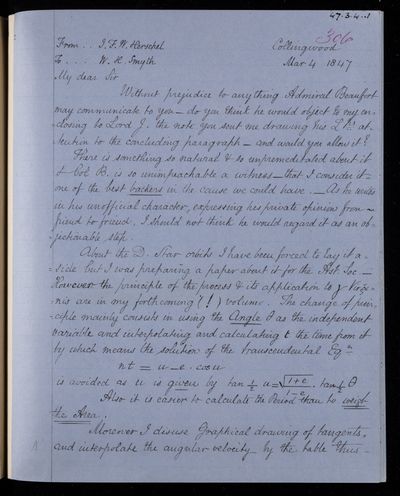 47.3.4.1
306
From .. J.F.W. Herschel Collingwood
To .... W. H. Smyth Mar 4 1847
My dear Sir
Without prejudice to anything Admiral Beaufort
may communicate to you – do you think he would object to my en-
closing to Lord J. the note you sent me drawing his Lp's at-
tention to the concluding paragraph – and would you allow it?
There is something so natural & so unpremeditated about it
& Col B. is so unimpeachable a witness – that I consider it –
one of the best backers in the cause we could have. – As he writes
in his unofficial character, expressing his private opinion from –
friend to friend. I should not think he would regard it as an ob-
jectionable step.
About the D. Star orbits I have been forced to lay it a-
-side but I was preparing a paper about it for the Ast Soc. –
However the principle of the process & its application to γ Virgi-
-nis are in my forthcoming (!) volume. The change of prin-
-ciple mainly consists in using the Angle θ as the independent
variable and interpolating and calculating t the time from it
by which means the solution of the transcendental Eqn
nt = u – e . cos u
is avoided as u is given by tan ½ u = √1+e/1–e . tan ½ θ
Also it is easier to calculate the Period than to weigh
the Area.
Moreover I disuse Graphical drawing of tangents,
and interpolate the angular velocity by the table thus –